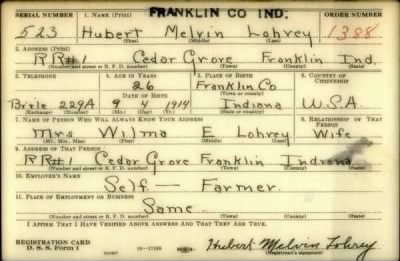 FRANKLIN CO IND:
SERIAL NUMBER 1. NAME (Print) ORDER NUMBER
523 Hubert Melvin Lohrey 1388
(First) (Middle) (Last)
2. ADDRESS (Print)
RR#1 Cedar Grove Franklin Ind.
(Number and street or R. F. D. number) (Town) (County) (State)
3. TELEPHONE 4. AGE IN YEARS 5. PLACE OF BIRTH 6. COUNTRY OF CITIZENSHIP
26 Franklin Co
DATE OF BIRTH (Town or county)
229A 9 4 1914 Indiana U.S.A.
(Exchange) (Number) (Mo.) (Day) (Yr.) (State or country)
7. NAME OF PERSON WHO WILL ALWAYS KNOW YOUR ADDRESS 8. RELATIONSHIP OF THAT PERSON
Mrs Wilma E Lohrey Wife
(Mr., Mrs., Miss) (First) (Middle) (Last)
9. ADDRESS OF THAT PERSON
RR#1 Cedar Grove Franklin Indiana
(Number and street or R. F. D. number) (Town) (County) (State)
10. EMPLOYER'S NAME
Self — Farmer.
11. PLACE OF EMPLOYMENT OR BUSINESS
Same
(Number and street or R. F. D. number) (Town) (County) (State)
I AFFIRM THAT I HAVE VERIFIED ABOVE ANSWERS AND THAT THEY ARE TRUE.
REGISTRATION CARD
D. S. S. Form 1 Hubert Melvin Lohrey
(Registrant's signature)